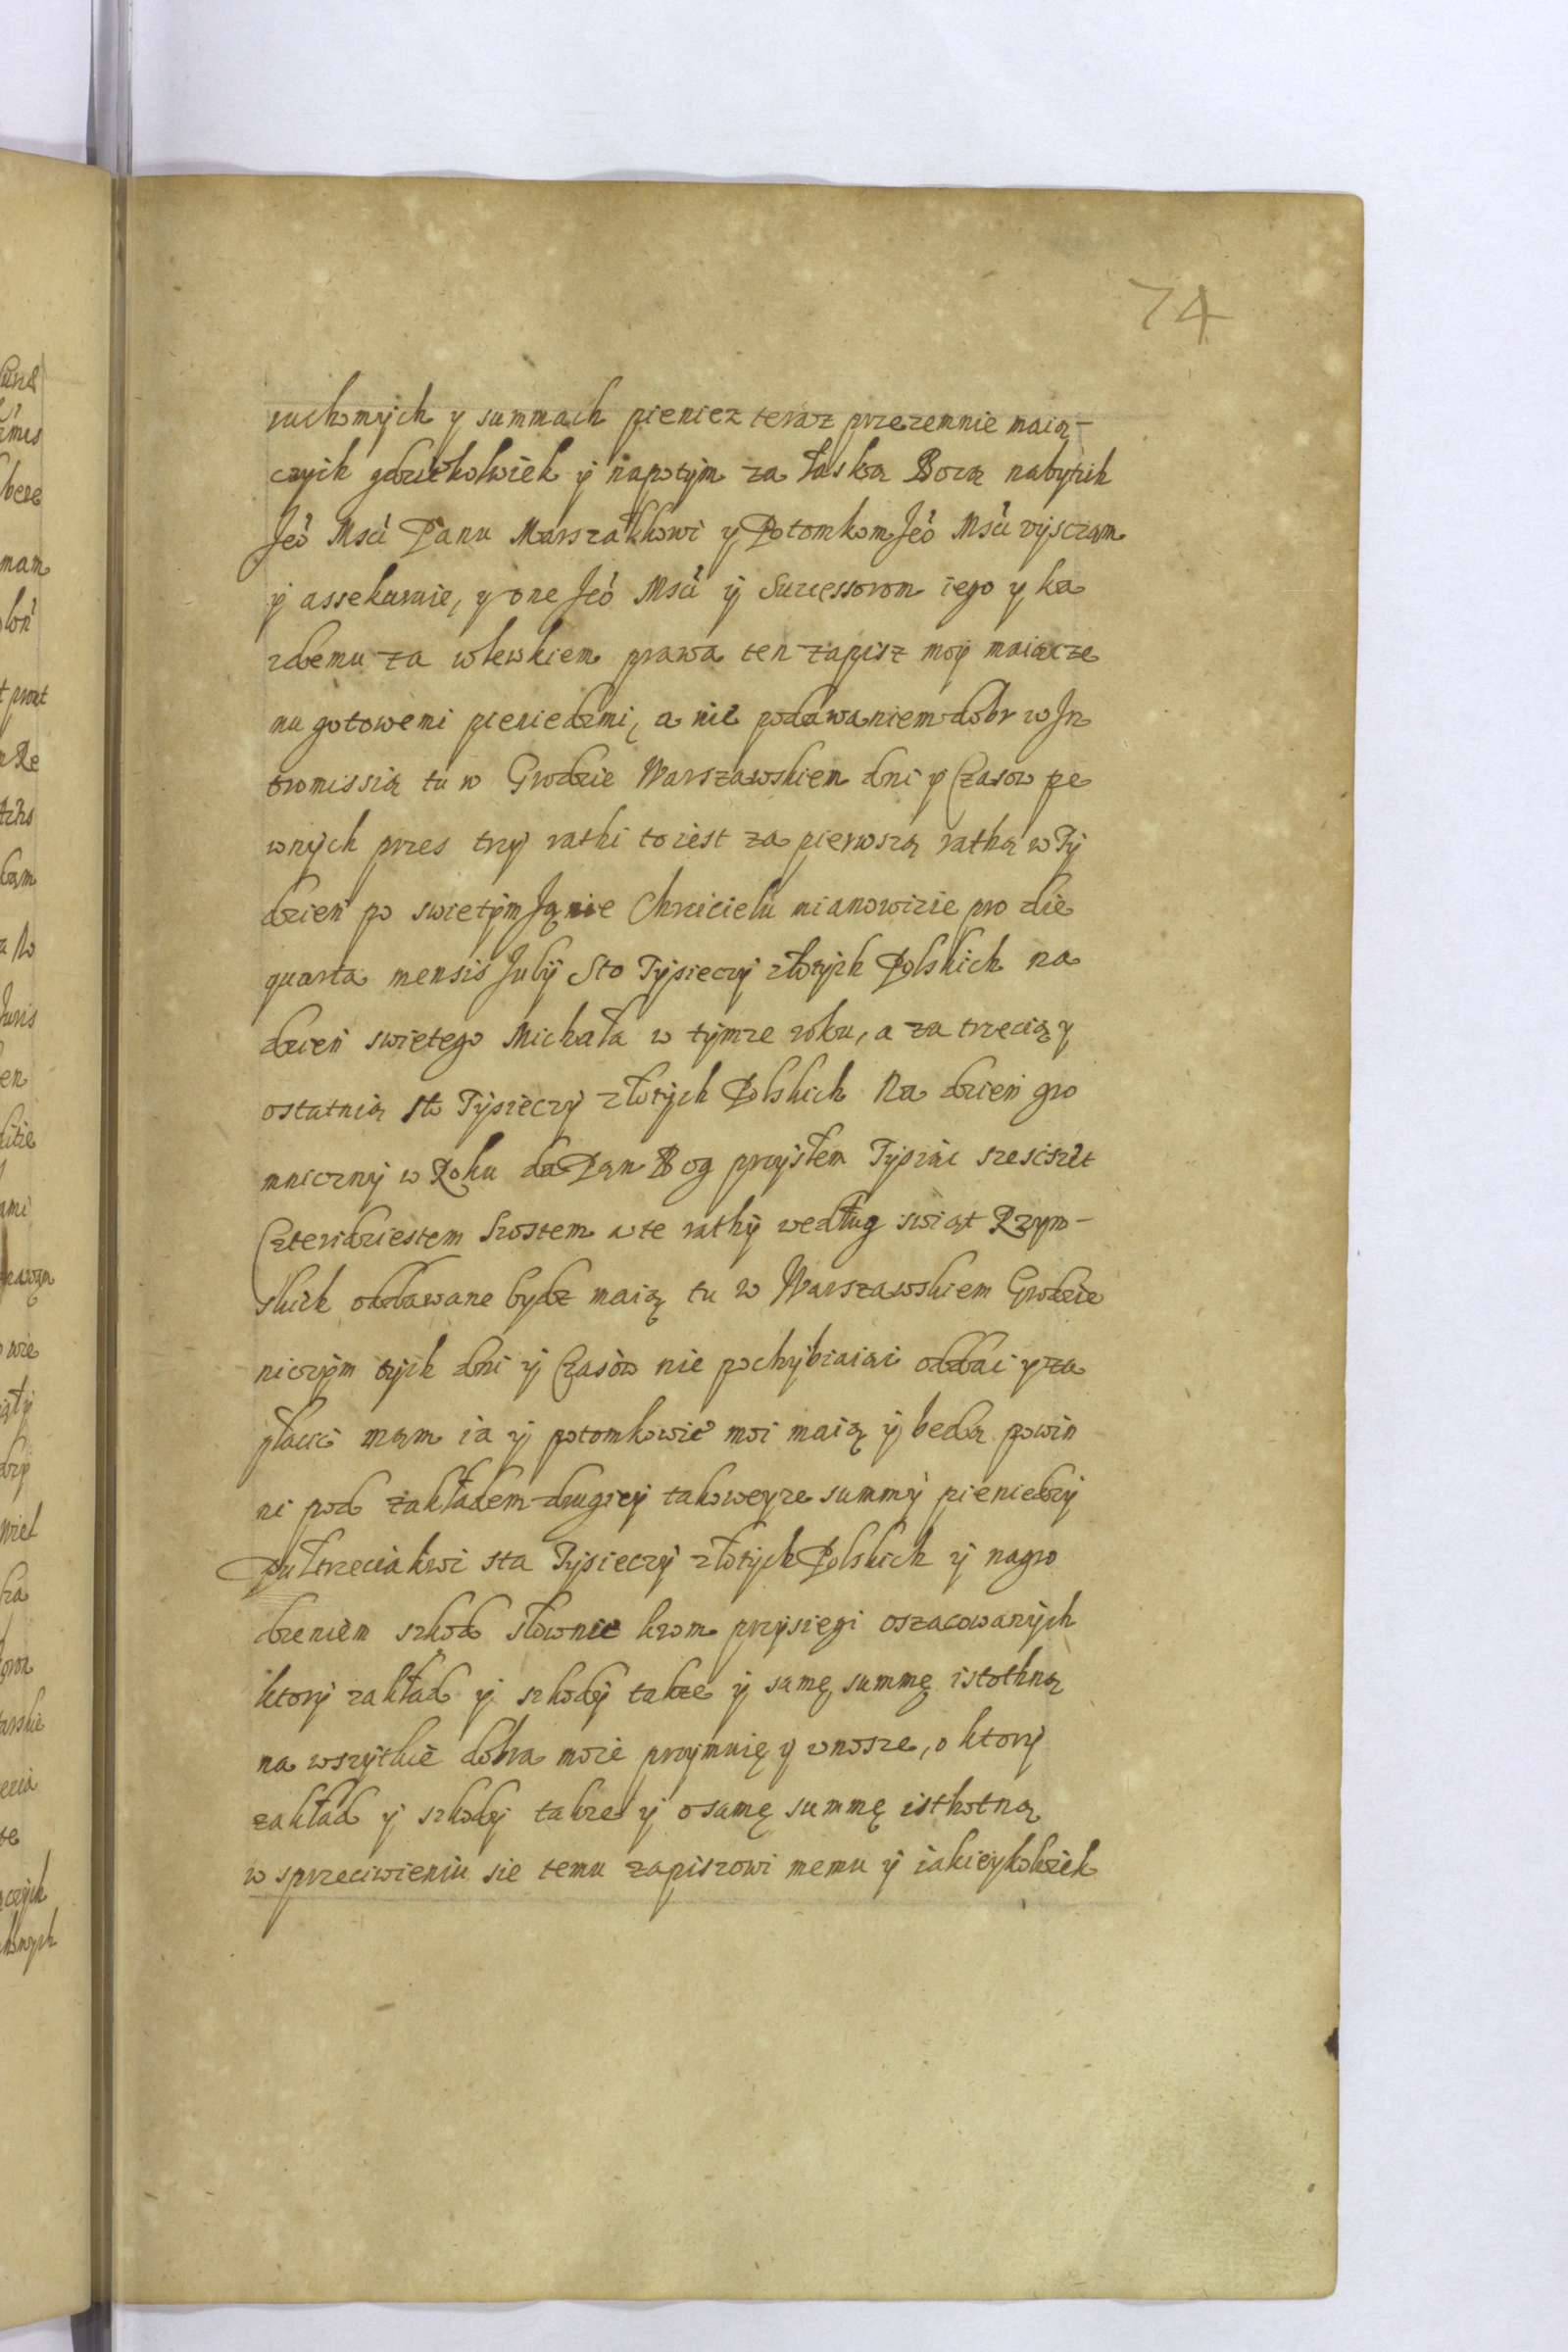 74
ruchomych y summach pieniez teraz przezemnie maią-
czych gdziekolwiek y napotym za łaską Bozą nabytich
Jeo Msci Panu Marszałkowi y Potomkom Jeo Msci vysczam
y assekuruie, y one Jeo Msci y Successorom iego y ka
zdemu za wlewkiem prawa ten zapisz moy maiącze
mu gotowemi pieniedzmi, a nie podawaniem dobr w In
tromissią tu w Grodzie Warszawskiem dni y Czasow pe
wnych przes trzy rathi to iest za pierwszą rathą w Ty
dzień po swietym Janie Chrzcicielu mianowicie pro die
quarta mensis July Sto Tysieczy złotych Polskich na
dzień swietego Michała w tymze roku, a za trzecią y
ostatnią sto Tysieczy złotych Polskich Na dzień gro
mniczny w Roku da Pan Bog przysłem Tysiąc szescset
Czterdziestem Szostem a te rathy według swiąt Rzym-
skich oddawane bydz maią tu w Warszawskiem Grodzie
niczym tych dni y Czasow nie pochybiaiąc oddac y za
płacic mam ia y potomkowie moi maią y bedą powin
ni pod zakładem drugiey takoweyze summy pieniedzy
Pułtrzeciakwi sta Tysieczy złotych Polskich y nagro
dzeniem szkod słownie krom przysiegi oszacowanych
ktory zakład y szkody takze y samę summę istothną
na wszytkie dobra moie przymuię y wnosze, o ktory
zakład y szkody takze y o samę summę isthotną
w sprzeciwieniu sie temu zapiszowi memu y iakieykolwiek